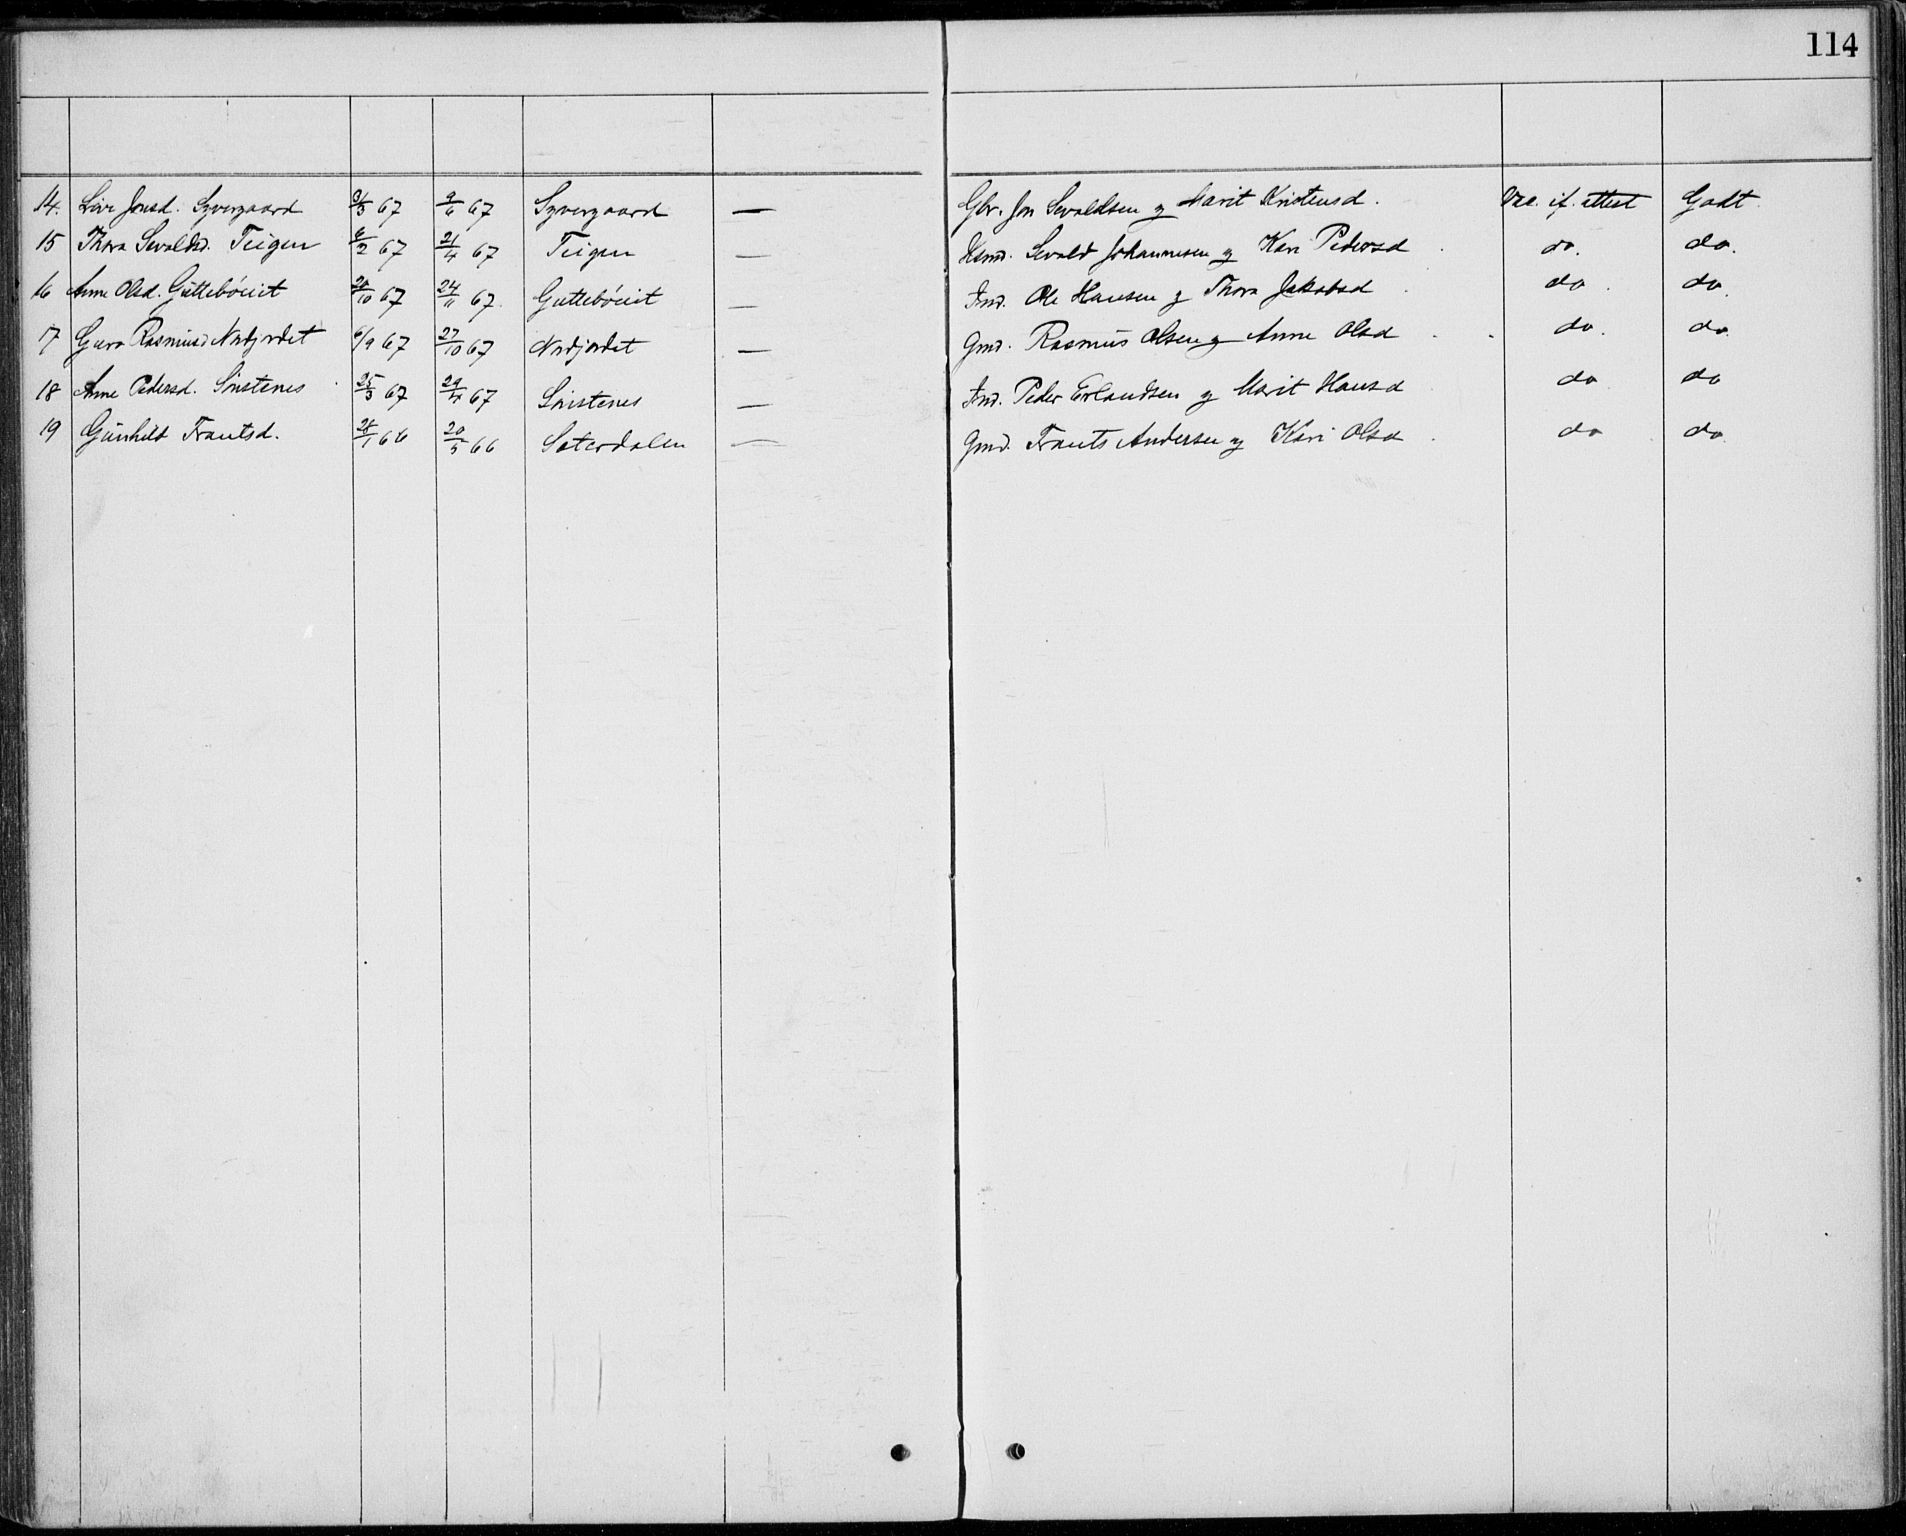 114
14. Live Jonsd. Syvergaard 31/3 67 9/6 67 Syvergaard — Gbr. Jon Sevaldsen og Marit Kristensd. Vac. if. attest Godt
15 Thora Sevaldsd. Teigen 6/2 67 21/4 67 Teigen — Hsmd. Sevald Johannesen og Kari Pedersd do. do.
16 Anne Olsd. Guttebóuit 20/10 67 24/11 67. Guttebóuit — Ind. Ole Hansen og Thora Jakobsd do. do.
17 Guro Rasmusd Nordjordet 6/9 67 27/10 67 Nordjordet — Gmd. Rasmus Olsen og Anne Olsd do. do.
18 Anne Pedersd. Snistenes 25/3 67 29/4 67 Snistenes — Ind. Peder Erlandsen og Marit Hansd do do
19 Gunhild Frantsd. 28/1 66 20/5 66 Saterdalen — Gmd. Frants Andersen og Kari Olsd do do